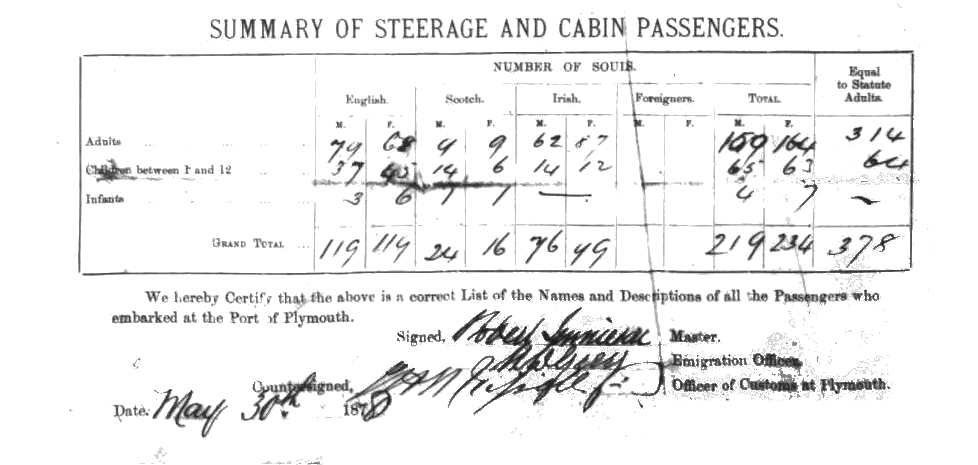 SUMMARY OF STEERAGE AND CABIN PASSENGERS.
NUMBER OF SOULS.
Equal to Statute Adults.
English. Scotch. Irish. Foreigners. TOTAL.
M. F. M. F. M. F. M. F. M. F.
Adults ... 79 68 9 9 62 87 150 164 314
Children between 1 and 12 37 45 14 6 14 12 65 63 64
Infants ... 3 6 1 1 — 4 7 —
GRAND TOTAL ... 119 119 24 16 76 99 219 234 378
We hereby Certify that the above is a correct List of the Names and Descriptions of all the Passengers who
embarked at the Port of Plymouth.
Signed, Robert Master.
Emigration Officer.
Countersigned, Officer of Customs at Plymouth.
Date. May 30th 1878